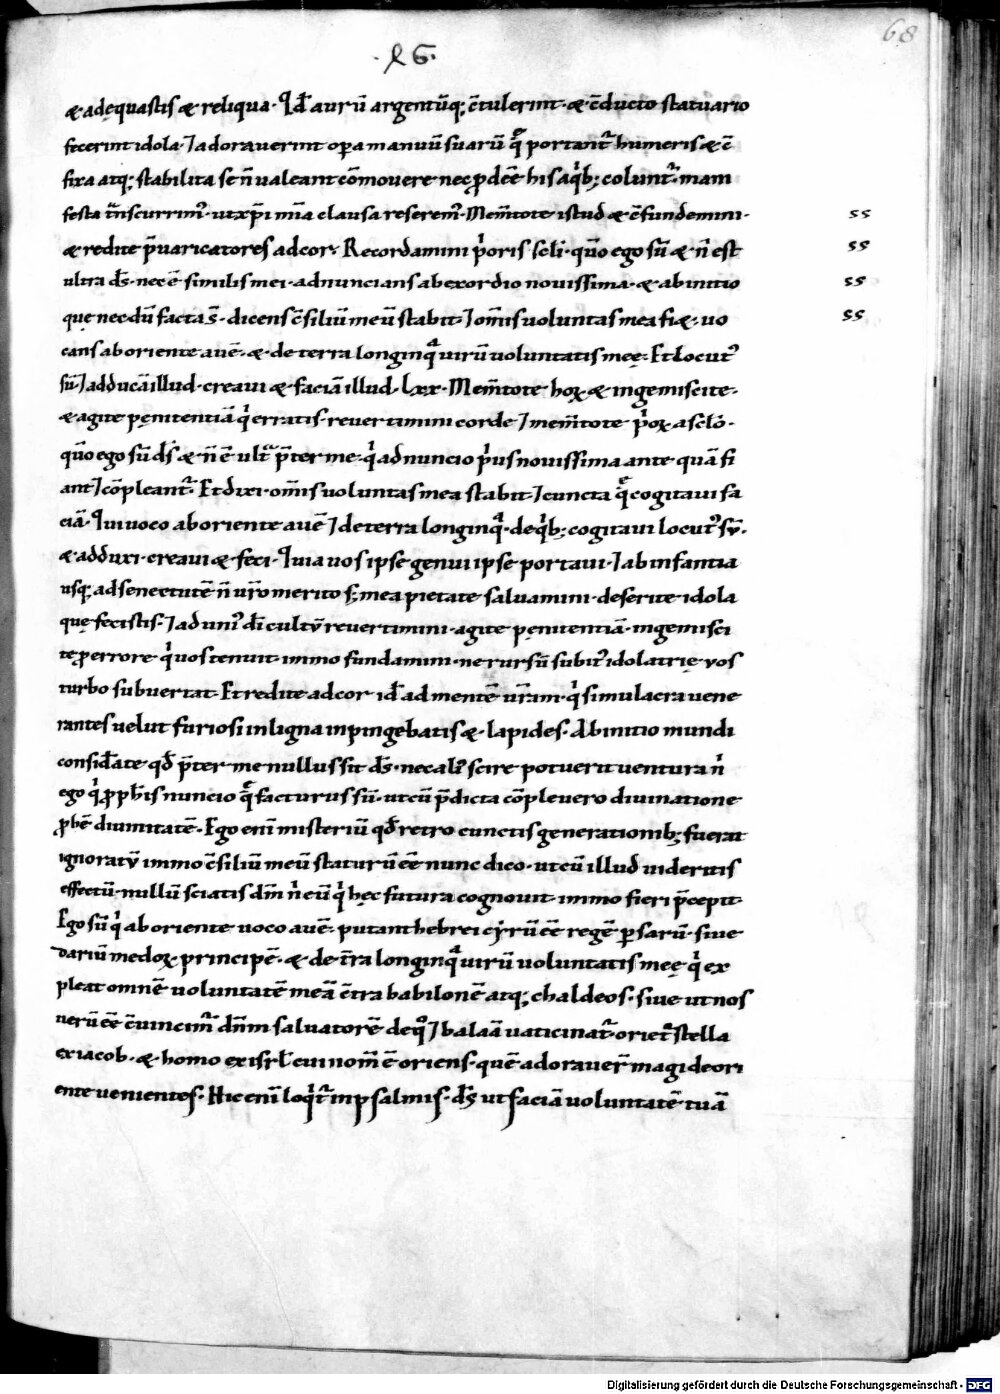 68
·LG·
& adęquastis & reliqua· Id̄ aurū argentūq; c̄tulerint· & c̄ducto statuario
fecerint idola· ⁊ adoraverint opa manuū suarū q̄ portant̄ humeris & c̄
fixa atq; stabilita se n̄ valeant cōmovere nec ꝓdēe his a qͥb; colunt̄· mani
festa t̄nscurrimꝰ· ut xp̄i mīa clausa reseremꝰ· Mem̄tote istud & c̄fundemini· ss
& redite p̄varicatores ad cor· Recordamini pͥoris scl̄i· qm̄o ego sū & n̄ est ss
ultra ds̄· nec ē similis mei· adnuncians ab exordio novissima· & ab initio ss
quę necdū facta s̄· dicens c̄siliū meū stabit· ⁊ om̄is voluntas mea fi&· vo ss
cans ab oriente avē· & de terra longinqͣ virū voluntatis meę· Et locutꝰ
sū ⁊ adducā illud· creavi & faciā illud· Lxx· Mem̄tote hoꝝ & ingemiscite·
& agite pęnitentiā qͥ erratis· revertimini corde ⁊ mem̄tote pͥoꝝ a sclō·
qm̄o ego sū ds̄ & n̄ ē ult̄ p̄ter me· qͥ adnuncio pͥus novissima ante quā fi
ant ⁊ cōpleant̄· Et dixi· om̄is voluntas mea stabit ⁊ cuncta q̄ cogitavi fa
ciā· Qui voco ab oriente avē ⁊ de terra longinqͣ· de qͥb; cogitavi locutꝰ sū·
& adduxi· creavi & feci· Quia vos ipse genui ipse portavi· ⁊ ab infantia
usq; ad senectutē n̄ vr̄o merito s; mea pietate salvamini· deserite idola
quę fecistis· ⁊ ad uniꝰ dī cultū revertimini· agite pęnitentiā· ingemisci
te ꝓ errore qͥ vos tenuit· immo fundamini· ne rursū subitꝰ idolatrię vos
turbo subvertat· Et redite ad cor id̄ ad mentē vr̄am· qͥ simulacra vene
rantes velut furiosi in ligna inpingebatis & lapides· Ab initio mundi
consid̄ate qd̄ p̄ter me nullus sit ds̄· nec aliꝰ scire potuerit ventura n̄
ego qͥ ꝓph̄is nuncio q̄ facturus sū· ut cū p̄dicta cōplevero divinatione
ꝓbē divinitatē· Ego enī misteriū qd̄ retro cunctis generationib; fuerat
ignoratū immo c̄siliū meū staturū ēe nunc dico· ut cū illud videritis
effectū· nullū sciatis dm̄ n̄ eū qͥ hęc futura cognovit· immo fieri p̄cepit·
Ego sū qͥ ab oriente voco avē· putant hebrei cyrū ēe regē persarū· sive
dariū medoꝝ principē· & de t̄ra longinqͣ virū voluntatis meę· qͥ ex
pleat omnē voluntatē meā c̄tra babilonē atq; chaldeos· sive ut nos
verū ēe c̄vincimꝰ dn̄m salvatorē de qͦ ⁊ balaā vaticinat̄· oriet̄ stella
ex iacob· & homo ex isrl̄ cui nom̄ ē oriens· quē adoraver̄ magi de ori
ente venientes· Hic enī loqͥt̄ in psalmis· ds̄ ut faciā voluntatē tuā
Digitalisierung gefördert durch die Deutsche Forschungsgemeinschaft - DFG